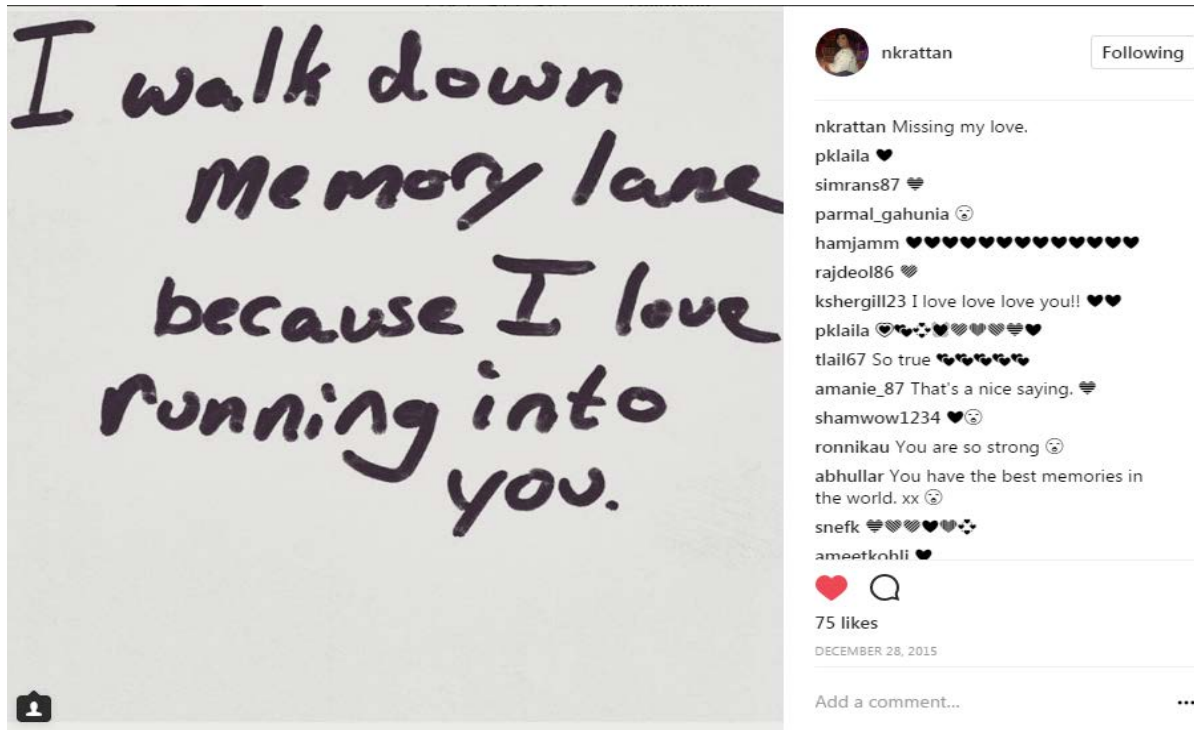 I walk down
memory lane
because I love
running into
you.
nkrattan
Following
nkrattan Missing my love.
pklaila 🖤
simrans87 🖤
parmal_gahunia 😮
hamjamm 🖤🖤🖤🖤🖤🖤🖤🖤🖤🖤🖤🖤🖤
rajdeol86 🖤
kshergill23 I love love love you!! 🖤🖤
pklaila
tlail67 So true 💕💕💕💕💕
amanie_87 That's a nice saying. 🖤
shamwow1234 🖤😮
ronnikau You are so strong 😮
abhullar You have the best memories in
the world. xx 😮
snefk
ameetkohli 🖤
75 likes
DECEMBER 28, 2015
Add a comment...